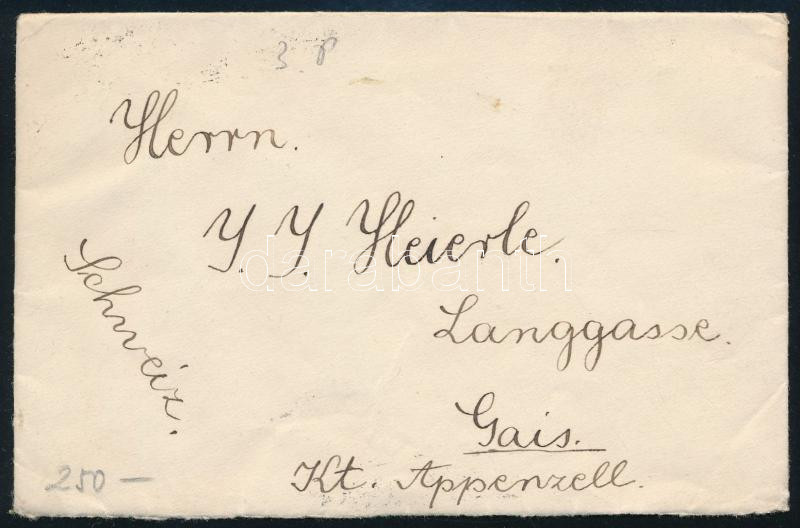 3 P
Herrn.
J. J. Heierle.
darabanth
Langgasse.
Schweiz.
Gais.
Kt. Appenzell.
250 —